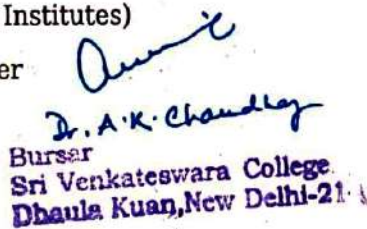 Institutes)
er
Dr. A.K. Chaudhary
Bursar
Sri Venkateswara College
Dhaula Kuan, New Delhi-21